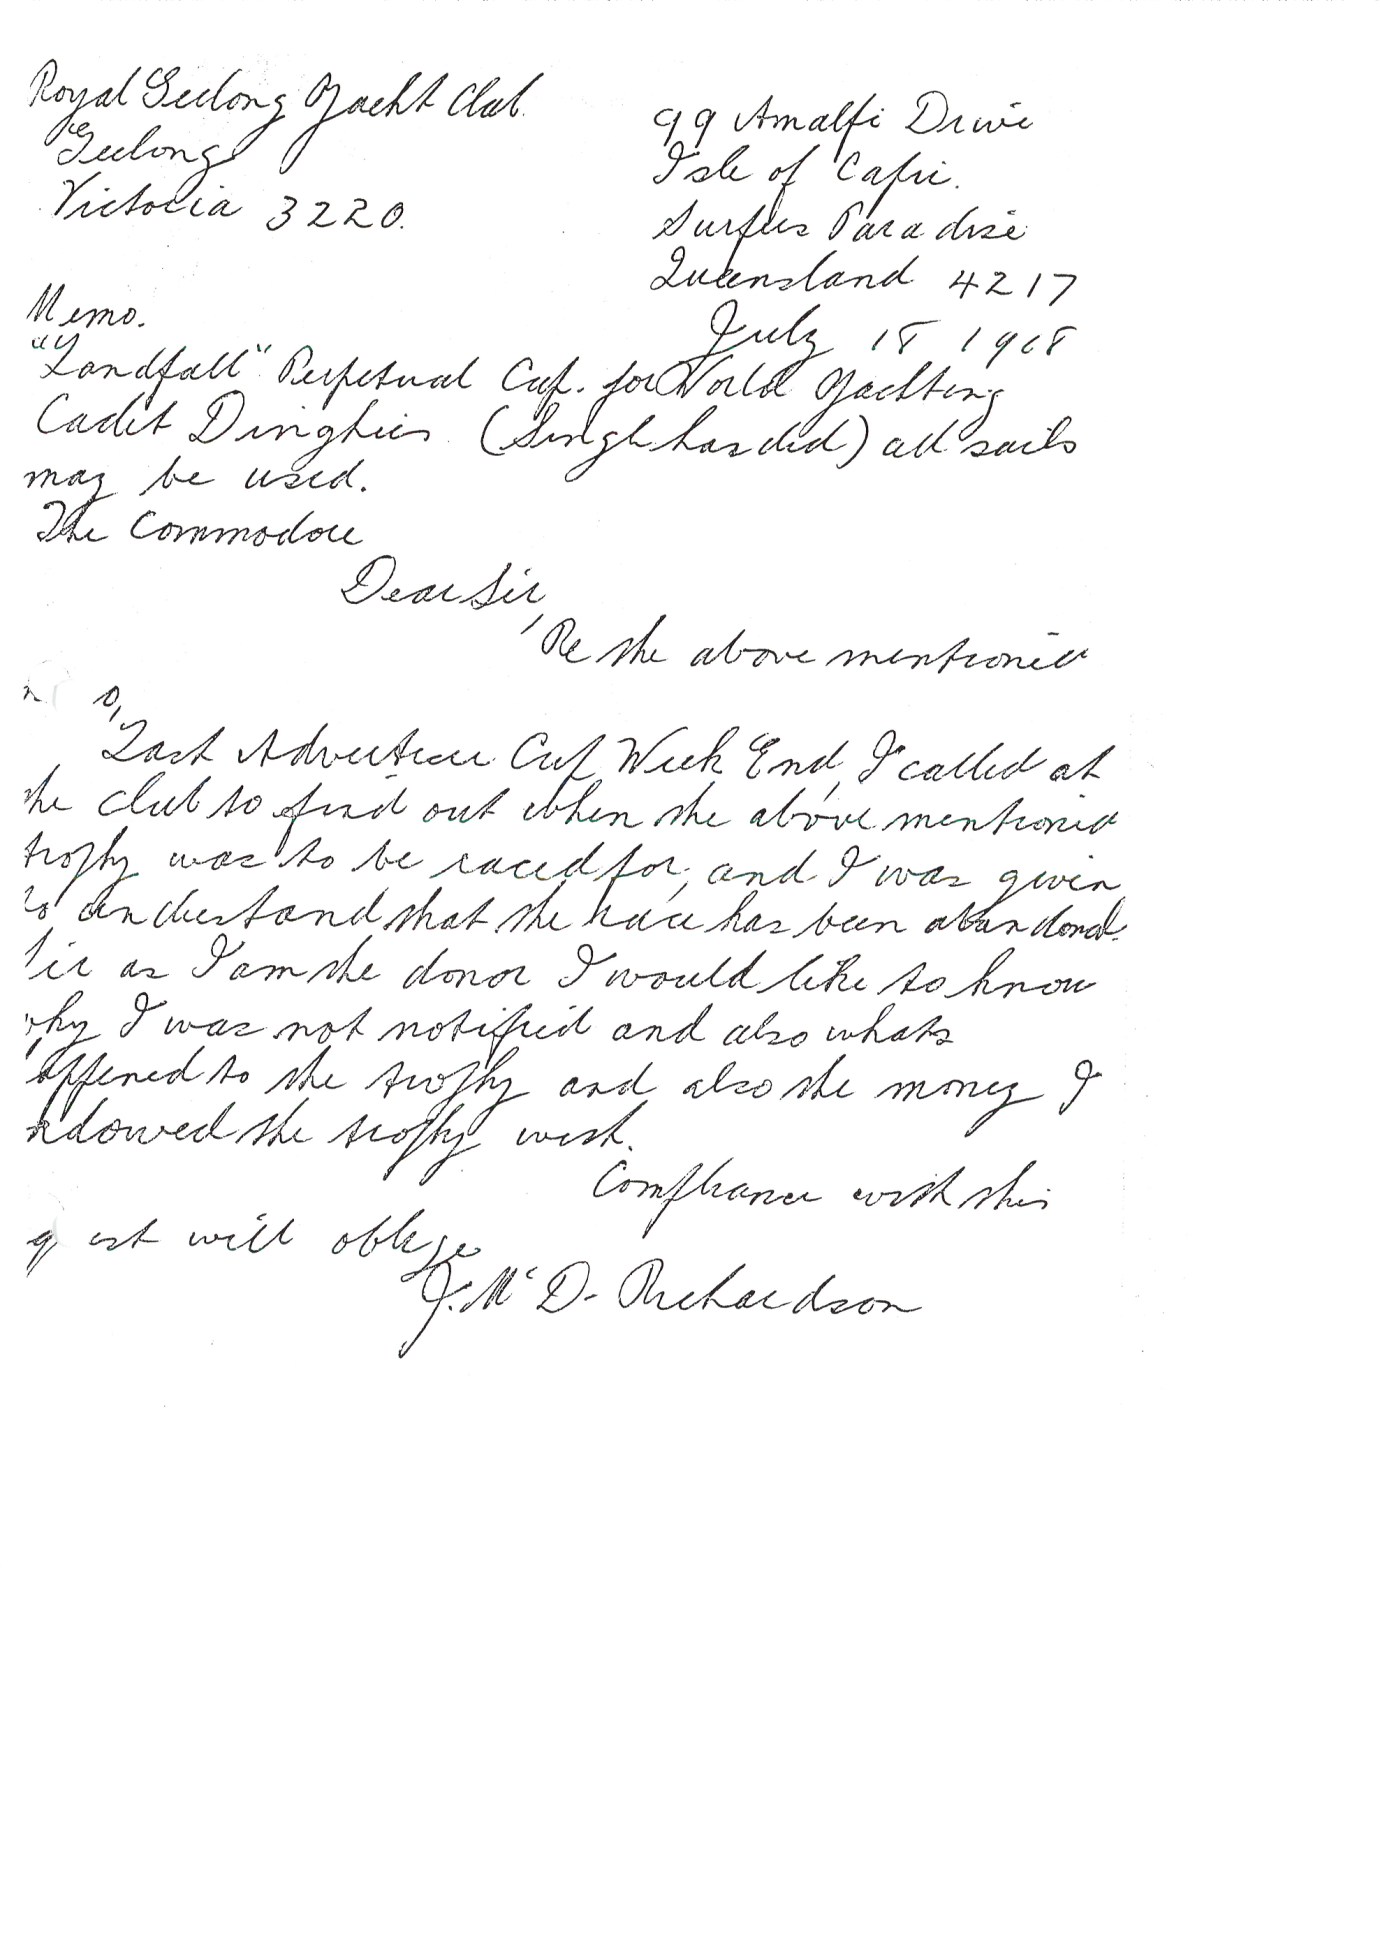 Royal Geelong Yacht Club.
Geelong
Victoria 3220.
99 Amalfi Drive
Isle of Capri.
Surfers Paradise
Queensland 4217
July 18 1968
Memo.
"Landfall" Perpetual Cup. for World Yachting
Cadet Dinghies (Single handed) all sails
may be used.
The Commodore
Dear Sir,
Re the above mentioned
Last Advertiser Cup Week End, I called at
the club to find out when the above mentioned
trophy was to be raced for, and I was given
to understand that the race has been abandoned.
Sir as I am the donor I would like to know
why I was not notified and also whats
appened to the trophy and also the money I
ndowed the trophy with.
Compliance with this
q est will oblige
J. McD. Richardson